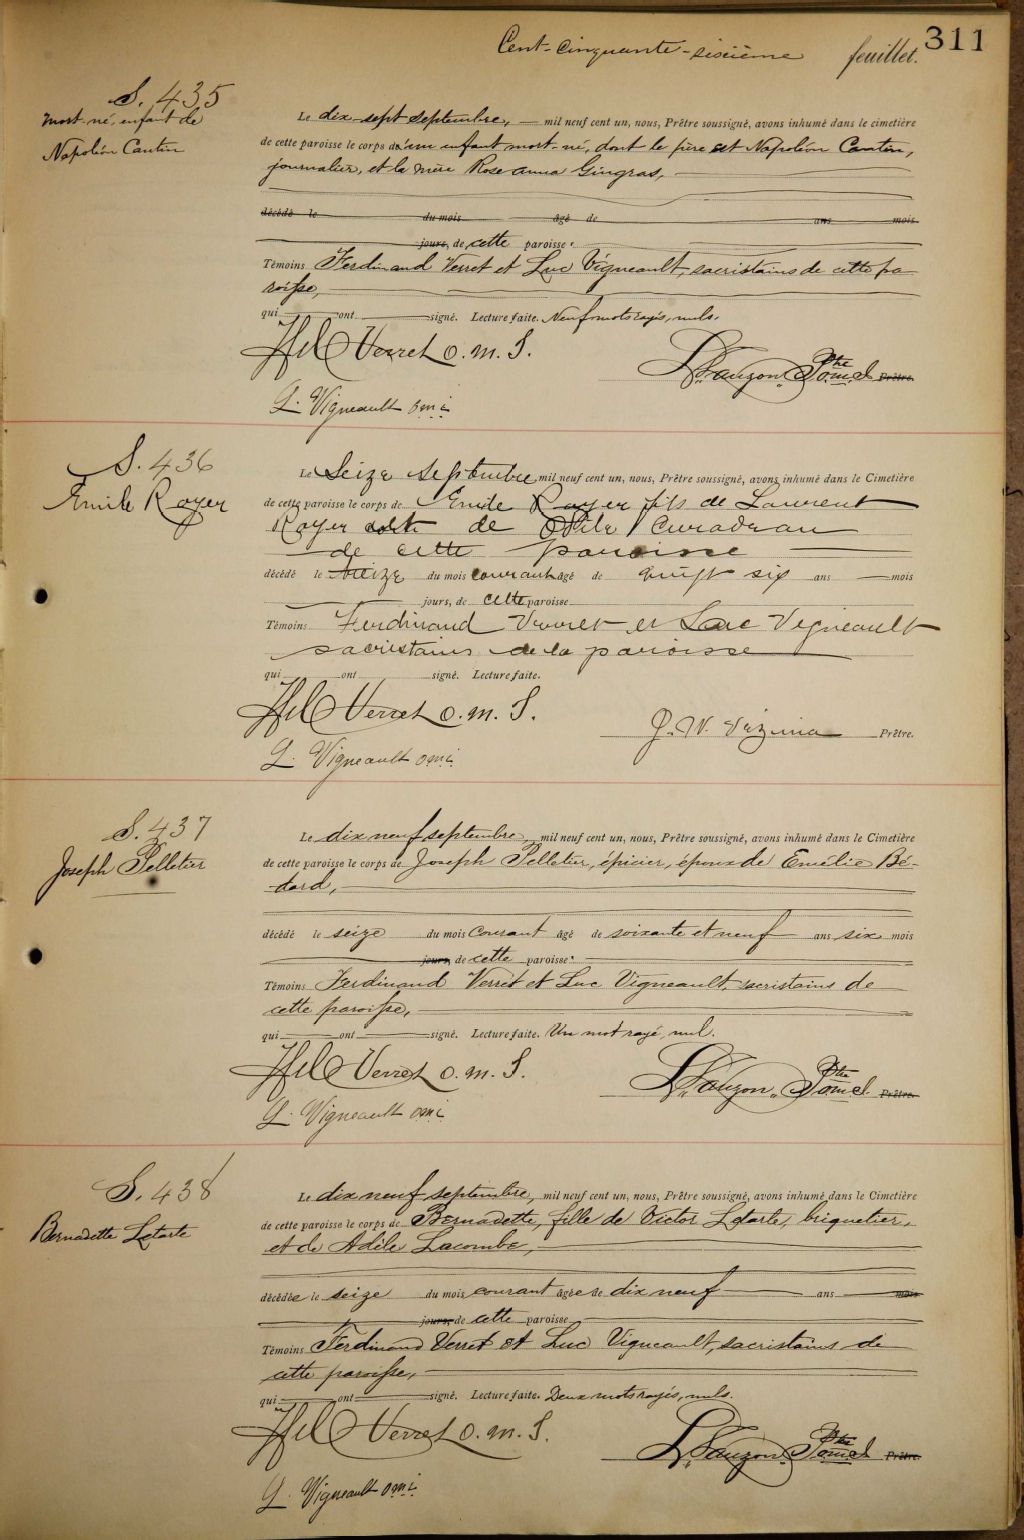 Cent-cinquante-sixième feuillet. 311
S. 435
mort-né, enfant de
Napoléon Cantin
Le dix-sept septembre, mil neuf cent un, nous, Prêtre soussigné, avons inhumé dans le cimetière
de cette paroisse le corps d'un enfant mort-né, dont le père est Napoléon Cantin,
journalier, et la mère Rose anna Gingras,
décédé le du mois âgé de ans mois
jours, de cette paroisse.
Témoins Ferdinand Verret et Luc Vigneault, sacristains de cette pa
roisse,
qui ont signé. Lecture faite. Neuf mots rayés, nuls.
Verret o. m. I.
L. Vigneault omi
Lauzon Ptre o.m.I. Prêtre.
S. 436
Emile Royer
Le Seize septembre mil neuf cent un, nous, Prêtre soussigné, avons inhumé dans le Cimetière
de cette paroisse le corps de Emile Royer fils de Laurent
Royer et de Odile Curadeau
de cette paroisse
décédé le treize du mois courant âgé de vingt six ans mois
jours, de cette paroisse
Témoins Ferdinand Verret et Luc Vigneault
sacristains de la paroisse
qui ont signé. Lecture faite.
Verret o. m. I.
L. Vigneault omi
J. W. Vézina Prêtre.
S. 437
Joseph Pelletier
Le dix neuf septembre, mil neuf cent un, nous, Prêtre soussigné, avons inhumé dans le Cimetière
de cette paroisse le corps de Joseph Pelletier, épicier, époux de Emélie Bé-
dard,
décédé le seize du mois courant âgé de soixante et neuf ans six mois
jours, de cette paroisse.
Témoins Ferdinand Verret et Luc Vigneault, sacristains de
cette paroisse,
qui ont signé. Lecture faite. Un mot rayé, nul.
Verret o. m. I.
L. Vigneault omi
Lauzon Ptre o.m.I. Prêtre.
S. 438
Bernadette Letarte
Le dix neuf septembre, mil neuf cent un, nous, Prêtre soussigné, avons inhumé dans le Cimetière
de cette paroisse le corps de Bernadette, fille de Victor Letarte, briquetier,
et de Adèle Lacombe,
décédée le seize du mois courant âgée de dix neuf ans mois
jours, de cette paroisse
Témoins Ferdinand Verret et Luc Vigneault, sacristains de
cette paroisse,
qui ont signé. Lecture faite. Deux mots rayés, nuls.
Verret o. m. I.
L. Vigneault omi
Lauzon Ptre o.m.I. Prêtre.